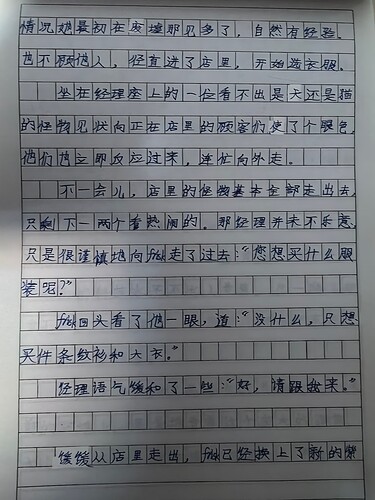 情况她最初在废墟那见多了，自然有经验。
也不顾他人，径直进了店里，开始选衣服。
坐在经理座上的一位看不出是犬还是猫
的怪物见状向正在店里的顾客们使了个眼色，
他们皆立即反应过来，连忙向外走。
不一会儿，店里的怪物基本全部走出去，
只剩下一两个看热闹的。那经理并未不乐意，
只是很谨慎地向frisk走了过去：“您想买什么服
装呢？”
frisk回头看了他一眼，道：“没什么，只想
买件条纹衫和大衣。”
经理语气缓和了一些：“好，请跟我来。”
缓缓从店里走出，frisk已经换上了新的